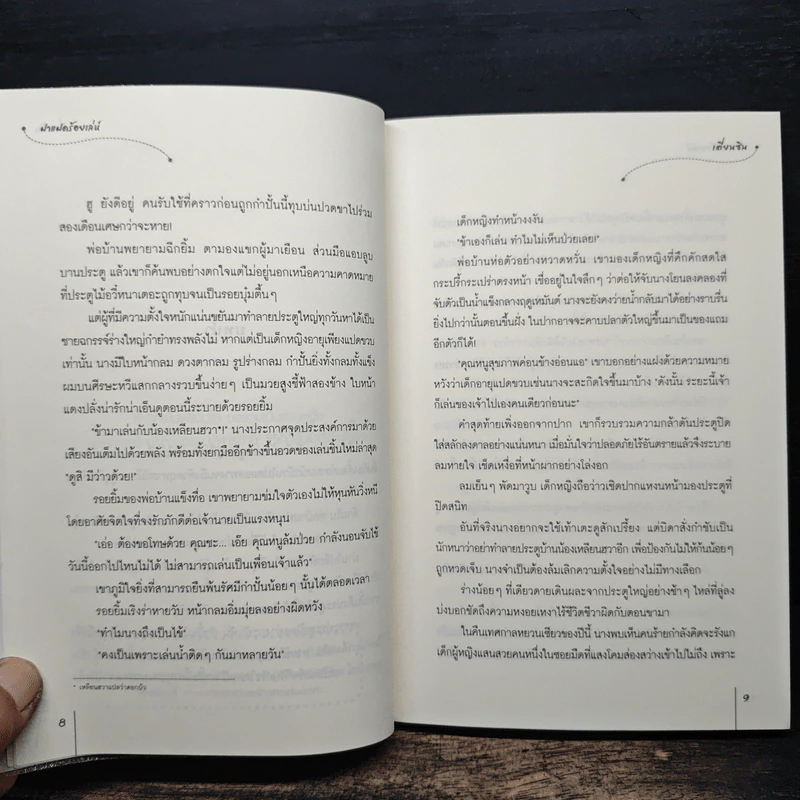 ฝาแฝดร้อยเล่ห์
ฮู ยังดีอยู่ คนรับใช้ที่คราวก่อนถูกกำปั้นนี้ทุบบ่นปวดขาไปร่วม
สองเดือนเศษกว่าจะหาย!
พ่อบ้านพยายามฉีกยิ้ม ตามองแขกผู้มาเยือน ส่วนมือแอบลูบ
บานประตู แล้วเขาก็ค้นพบอย่างตกใจแต่ไม่อยู่นอกเหนือความคาดหมาย
ที่ประตูไม้อวี้หนาเตอะถูกทุบจนเป็นรอยบุ๋มตื้นๆ
แต่ผู้ที่มีความตั้งใจหนักแน่นขยันมาทำลายประตูใหญ่ทุกวันหาได้เป็น
ชายฉกรรจ์ร่างใหญ่กำยำทรงพลังไม่ หากแต่เป็นเด็กหญิงอายุเพียงแปดขวบ
เท่านั้น นางมีใบหน้ากลม ดวงตากลม รูปร่างกลม กำปั้นยิ่งทั้งกลมทั้งแข็ง
ผมบนศีรษะหวีแสกกลางรวบขึ้นง่ายๆ เป็นมวยสูงชี้ฟ้าสองข้าง ใบหน้า
แดงปลั่งน่ารักน่าเอ็นดูตอนนี้ระบายด้วยรอยยิ้ม
"ข้ามาเล่นกับน้องเหลียนฮวา*!" นางประกาศจุดประสงค์การมาด้วย
เสียงอันเต็มไปด้วยพลัง พร้อมทั้งยกมืออีกข้างขึ้นอวดของเล่นชิ้นใหม่ล่าสุด
"ดูสิ มีว่าวด้วย!"
รอยยิ้มของพ่อบ้านแข็งทื่อ เขาพยายามข่มใจตัวเองไม่ให้หุนหันวิ่งหนี
โดยอาศัยจิตใจที่จงรักภักดีต่อเจ้านายเป็นแรงหนุน
"เอ่อ ต้องขอโทษด้วย คุณชะ... เอ๊ย คุณหนูล้มป่วย กำลังนอนจับไข้
วันนี้ออกไปไหนไม่ได้ ไม่สามารถเล่นเป็นเพื่อนเจ้าแล้ว"
เขาภูมิใจยิ่งที่สามารถยืนพ้นรัศมีกำปั้นน้อยๆ นั้นได้ตลอดเวลา
รอยยิ้มเริงร่าหายวับ หน้ากลมอิ่มมุ่ยลงอย่างผิดหวัง
"ทำไมนางถึงเป็นไข้"
"คงเป็นเพราะเล่นน้ำติดๆ กันมาหลายวัน"
* เหลียนฮวาแปลว่าดอกบัว
8
เตี่ยนซิน
เด็กหญิงทำหน้างงงัน
"ข้าเองก็เล่น ทำไมไม่เห็นป่วยเลย!"
พ่อบ้านห่อตัวอย่างหวาดหวั่น เขามองเด็กหญิงที่คึกคักสดใส
กระปรี้กระเปร่าตรงหน้า เชื่ออยู่ในใจลึกๆ ว่าต่อให้จับนางโยนลงคลองที่
จับตัวเป็นน้ำแข็งกลางฤดูเหมันต์ นางจะยังคงว่ายน้ำกลับมาได้อย่างราบรื่น
ยิ่งไปกว่านั้นตอนขึ้นฝั่ง ในปากอาจจะคาบปลาตัวใหญ่ขึ้นมาเป็นของแถม
อีกตัวก็ได้!
"คุณหนูสุขภาพค่อนข้างอ่อนแอ" เขาบอกอย่างแฝงด้วยความหมาย
หวังว่าเด็กอายุแปดขวบเช่นนางจะสะกิดใจขึ้นมาบ้าง "ดังนั้น ระยะนี้เจ้า
ก็เล่นของเจ้าไปเองคนเดียวก่อนนะ"
คำสุดท้ายเพิ่งออกจากปาก เขาก็รวบรวมความกล้าดันประตูปิด
ใส่สลักลงดาลอย่างแน่นหนา เมื่อมั่นใจว่าปลอดภัยไร้อันตรายแล้วจึงระบาย
ลมหายใจ เช็ดเหงื่อที่หน้าผากอย่างโล่งอก
ลมเย็นๆ พัดมาวูบ เด็กหญิงถือว่าวเชิดปากแหงนหน้ามองประตูที่
ปิดสนิท
อันที่จริงนางอยากจะใช้เท้าเตะดูสักเปรี้ยง แต่บิดาสั่งกำชับเป็น
นักหนาว่าอย่าทำลายประตูบ้านน้องเหลียนฮวาอีก เพื่อป้องกันไม่ให้ก้นน้อยๆ
ถูกหวดเจ็บ นางจำเป็นต้องล้มเลิกความตั้งใจอย่างไม่มีทางเลือก
ร่างน้อยๆ ที่เดียวดายเดินผละจากประตูใหญ่อย่างช้าๆ ไหล่ที่ลู่ลง
บ่งบอกชัดถึงความหงอยเหงาไร้ชีวิตชีวาผิดกับตอนขามา
ในคืนเทศกาลหยวนเซียวของปีนี้ นางพบเห็นคนร้ายกำลังคิดจะรังแก
เด็กผู้หญิงแสนสวยคนหนึ่งในซอยมืดที่แสงโคมส่องสว่างเข้าไปไม่ถึง เพราะ
9